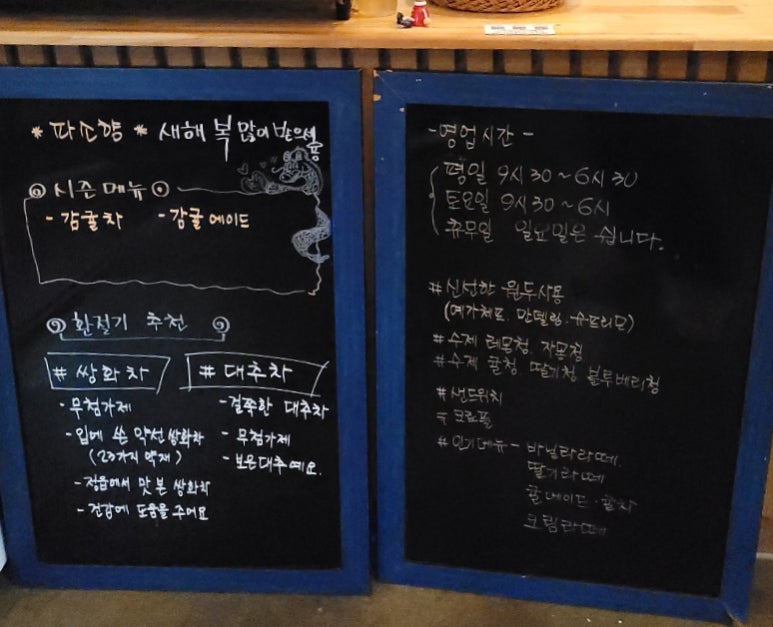 * 파소향 * 새해 복 많이 받으세용
시즌메뉴
- 감귤차 - 감귤에이드
환절기 추천
# 쌍화차
- 무첨가제
- 입에 쓴 약선 쌍화차
(23가지 약재)
- 정읍에서 맛 본 쌍화차
- 건강에 도움을 주어요
# 대추차
- 걸쭉한 대추차
- 무첨가제
- 보은대추예요.
- 영업시간 -
평일 9시 30 ~ 6시 30
토요일 9시 30 ~ 6시
휴무일 일요일은 쉽니다.
# 신선한 원두사용
(예가체프. 만델링. 슈프리모)
# 수제 레몬청. 자몽청
# 수제 귤청 딸기청 블루베리청
# 샌드위치
# 크로플
# 인기메뉴 - 바닐라라떼.
딸기라떼
귤에이드. 귤차
크림라떼